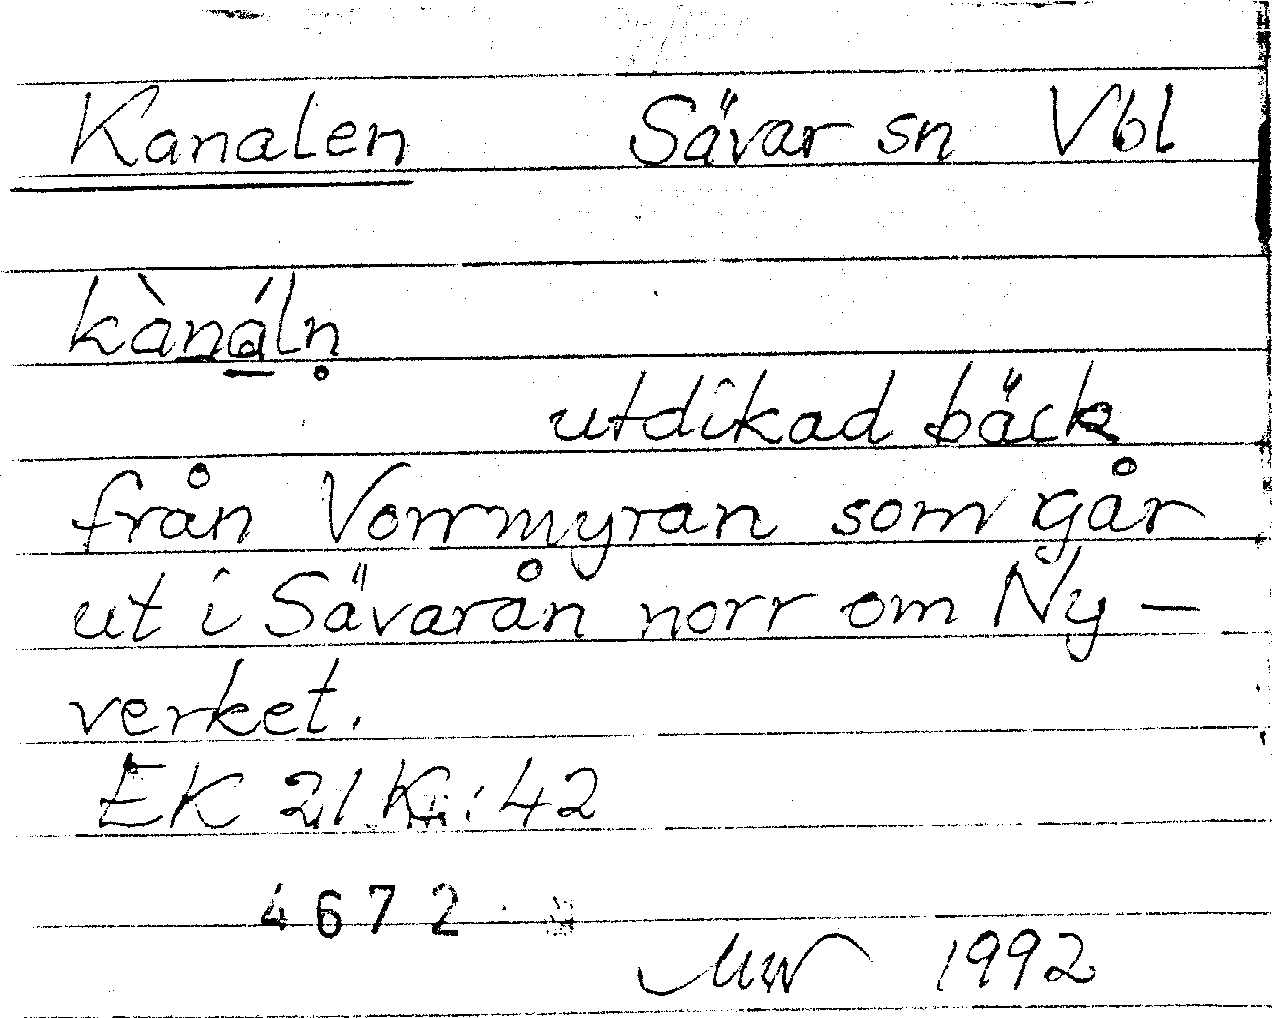 Kanalen Sävar sn Vbl
kànáln̥
utdikad bäck
från Vorrmyran som går
ut i Sävarån norr om Ny-
verket.
EK 21 K :42
4672
MW 1992